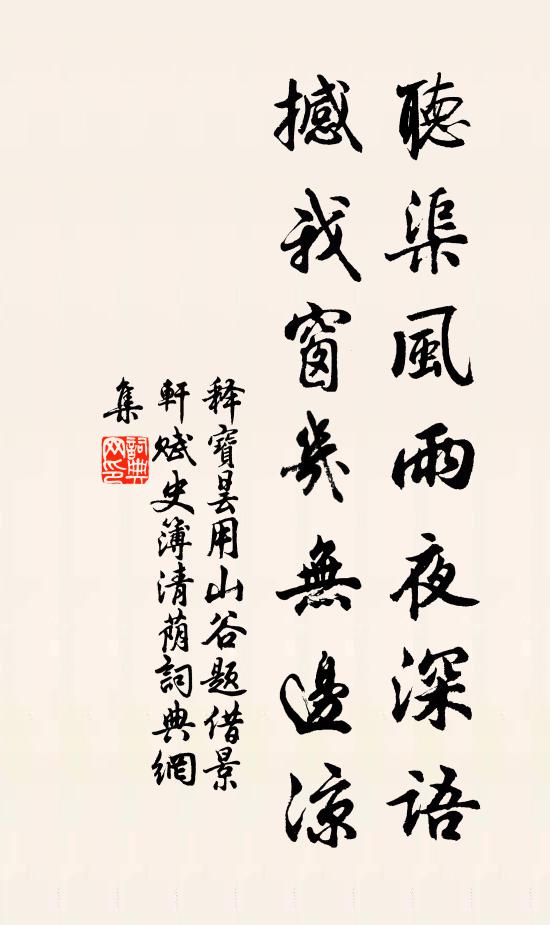 聽渠風雨夜深語
撼我窗幾無邊涼
释寶曇用山谷題借景
軒賦史簿清蔭詞典網
集
詞典網印